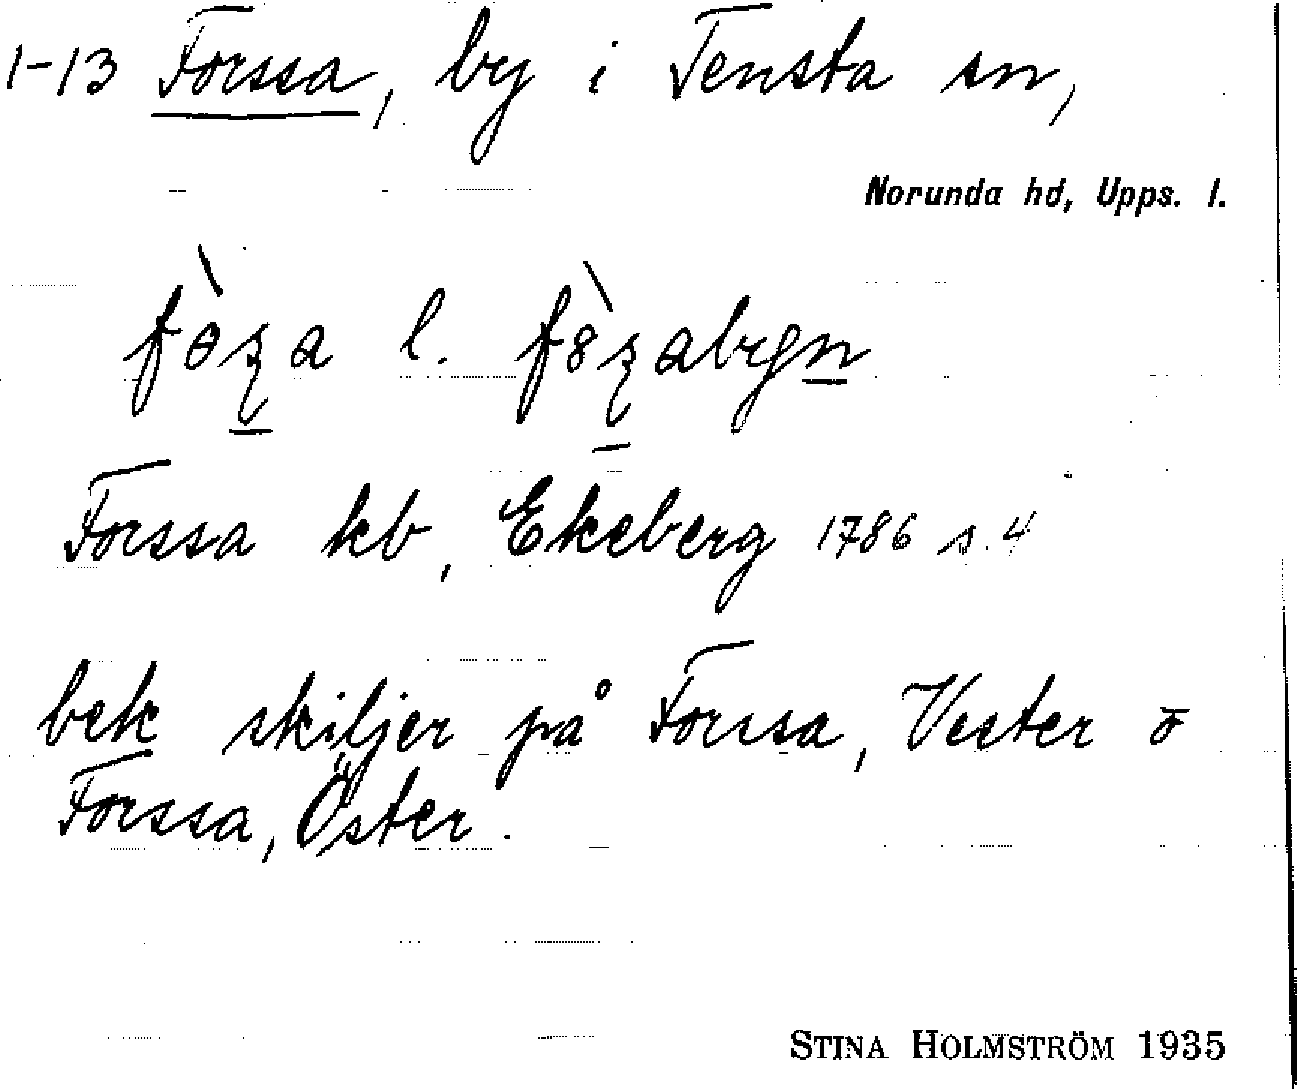 1-13 Forssa, by i Tensta sn,
Norunda hd, Upps. l.
l.
Forssa kb, Ekeberg 1786 s. 4
bek skiljer på Forssa, Vester o
Forssa, Öster.
STINA HOLMSTRÖM 1935